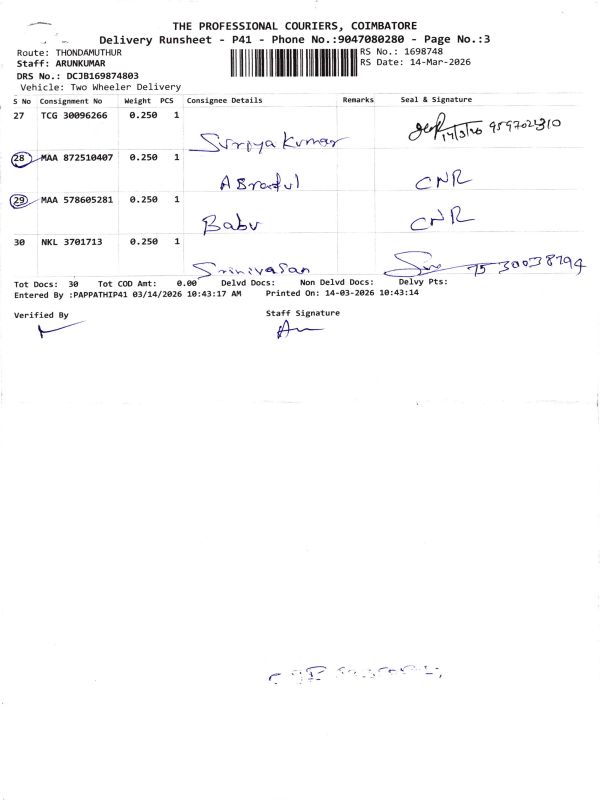 THE PROFESSIONAL COURIERS, COIMBATORE
Delivery Runsheet - P41 - Phone No.:9047080280 - Page No.:3
Route: THONDAMUTHUR
RS No.: 1698748
Staff: ARUNKUMAR
RS Date: 14-Mar-2026
DRS No.: DCJB169874803
Vehicle: Two Wheeler Delivery
S No Consignment No Weight PCS Consignee Details Remarks Seal & Signature
27 TCG 30096266 0.250 1
Suriya Kumar 14/3/26
28 MAA 872510407 0.250 1
CNR
29 MAA 578605281 0.250 1
Babu CNR
30 NKL 3701713 0.250 1
Srinivasan 75 30038794
Tot Docs: 30 Tot COD Amt: 0.00 Delvd Docs: Non Delvd Docs: Delvy Pts:
Entered By :PAPPATHIP41 03/14/2026 10:43:17 AM Printed On: 14-03-2026 10:43:14
Verified By Staff Signature